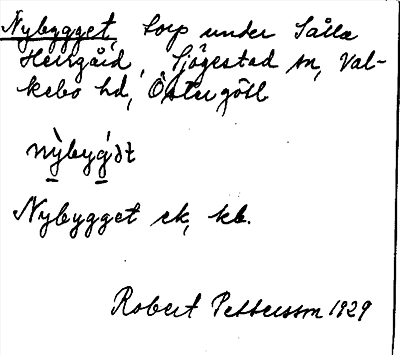 Nybygget, torp under Sålla
Herrgård, Sjögestad sn, Val-
kebo hd, Östergötl
nỳbyg̀ǝt
Nybygget ek, kb.
Robert Pettersson 1929